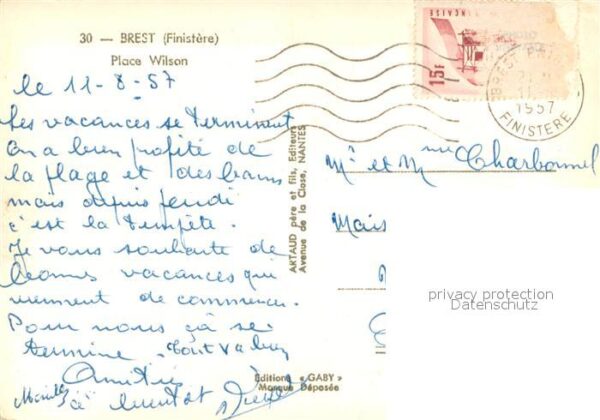 30 — BREST (Finistère)
Place Wilson
le 11-8-57
Les vacances se terminent
On a bien profité de
la plage et des bains
mais depuis jeudi
c'est la tempête.
Je vous souhaite de
bonnes vacances qui
viennent de commencer.
Pour nous çà se
termine. Tout va bien
Amitiés
à bientôt
ARTAUD père et fils, Editeurs
Avenue de la Close, NANTES
Editions « GABY »
Marque Déposée
15F
BREST
1957
FINISTERE
Mr et Mme Charbonnel
Mais
privacy protection
Datenschutz